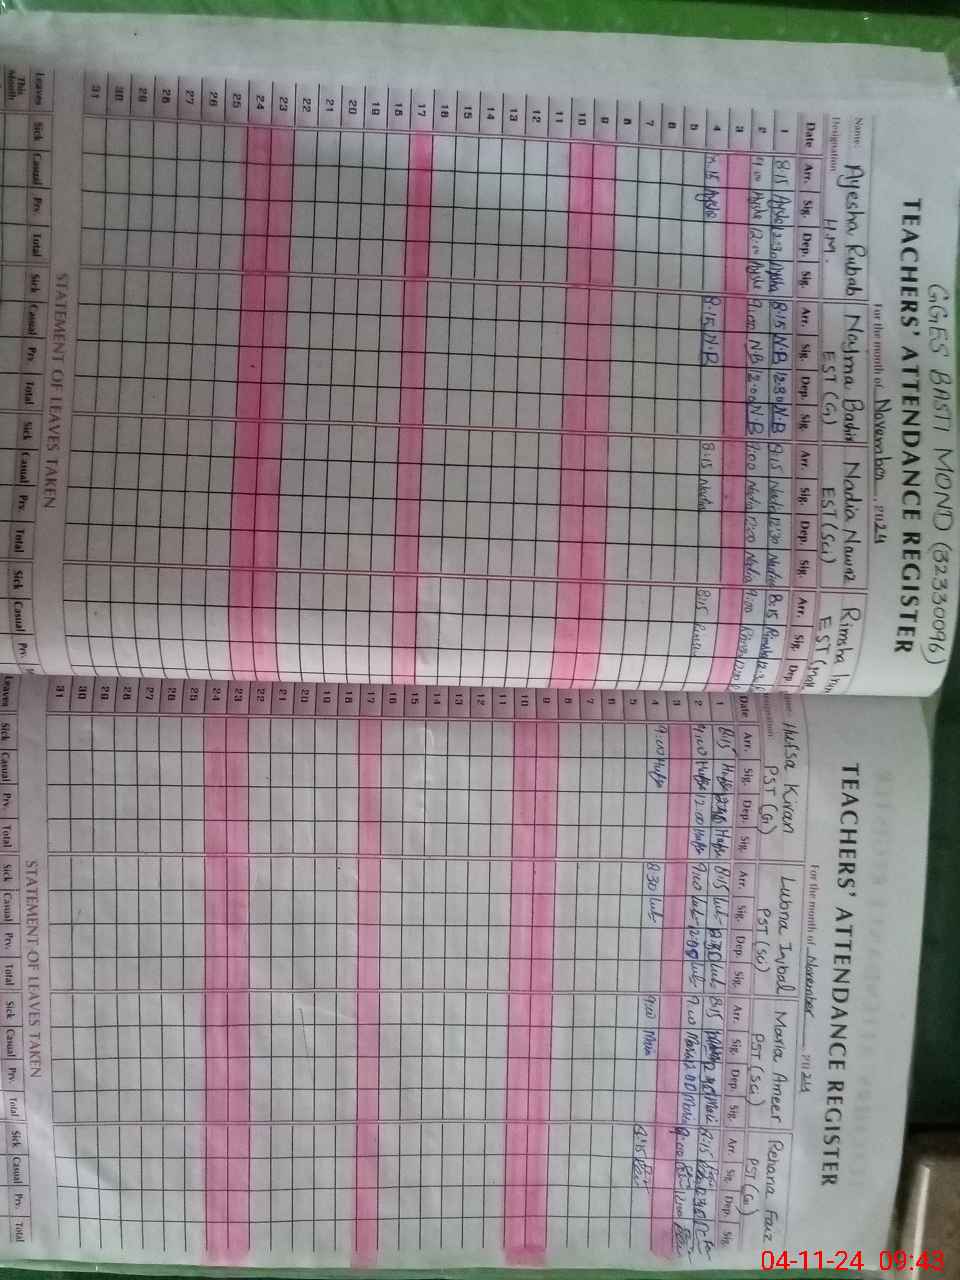 GGES BASTI MOND (32330096)
TEACHERS' ATTENDANCE REGISTER
For the month of November, 2024
Name: Ayesha Rubab Najma Bashir Nadia Nawaz Rimsha
Designation H.M. EST (G) EST (Sci) EST
Date Arr. Sig. Dep. Sig. Arr. Sig. Dep. Sig. Arr. Sig. Dep. Sig. Arr. Sig. Dep.
1 8:15 12:30 8:15 N.B 12:30 N.B 8:15 Nadia 12:30 Nadia 8:15 Rimsha
2 9:00 12:00 9:00 N.B 12:00 N.B 9:00 Nadia 12:00 Nadia 9:00
3
4 8:15 N.B 8:15 Nadia 8:15
5
6
7
8
9
10
11
12
13
14
15
16
17
18
19
20
21
22
23
24
25
26
27
28
29
30
31
STATEMENT OF LEAVES TAKEN
Leaves Sick Casual Prv. Total Sick Casual Prv. Total Sick Casual Prv. Total Sick Casual Prv.
This Month
TEACHERS' ATTENDANCE REGISTER
For the month of November, 2024
Hafsa Kiran Lubna Iqbal Maria Ameer Rehana Faiz
PST (G) PST (Sci) PST (Sci) PST (G)
Date Arr. Sig. Dep. Sig. Arr. Sig. Dep. Sig. Arr. Sig. Dep. Sig. Arr. Sig. Dep. Sig.
1 8:15 8:15 8:15 8:15
2 9:00 12:00 9:00 12:00 9:00 12:00 9:00 12:00
3
4 9:00 8:30 9:00
5
6
7
8
9
10
11
12
13
14
15
16
17
18
19
20
21
22
23
24
25
26
27
28
29
30
31
STATEMENT OF LEAVES TAKEN
Leaves Sick Casual Prv. Total Sick Casual Prv. Total Sick Casual Prv. Total Sick Casual Prv. Total
04-11-24 09:43